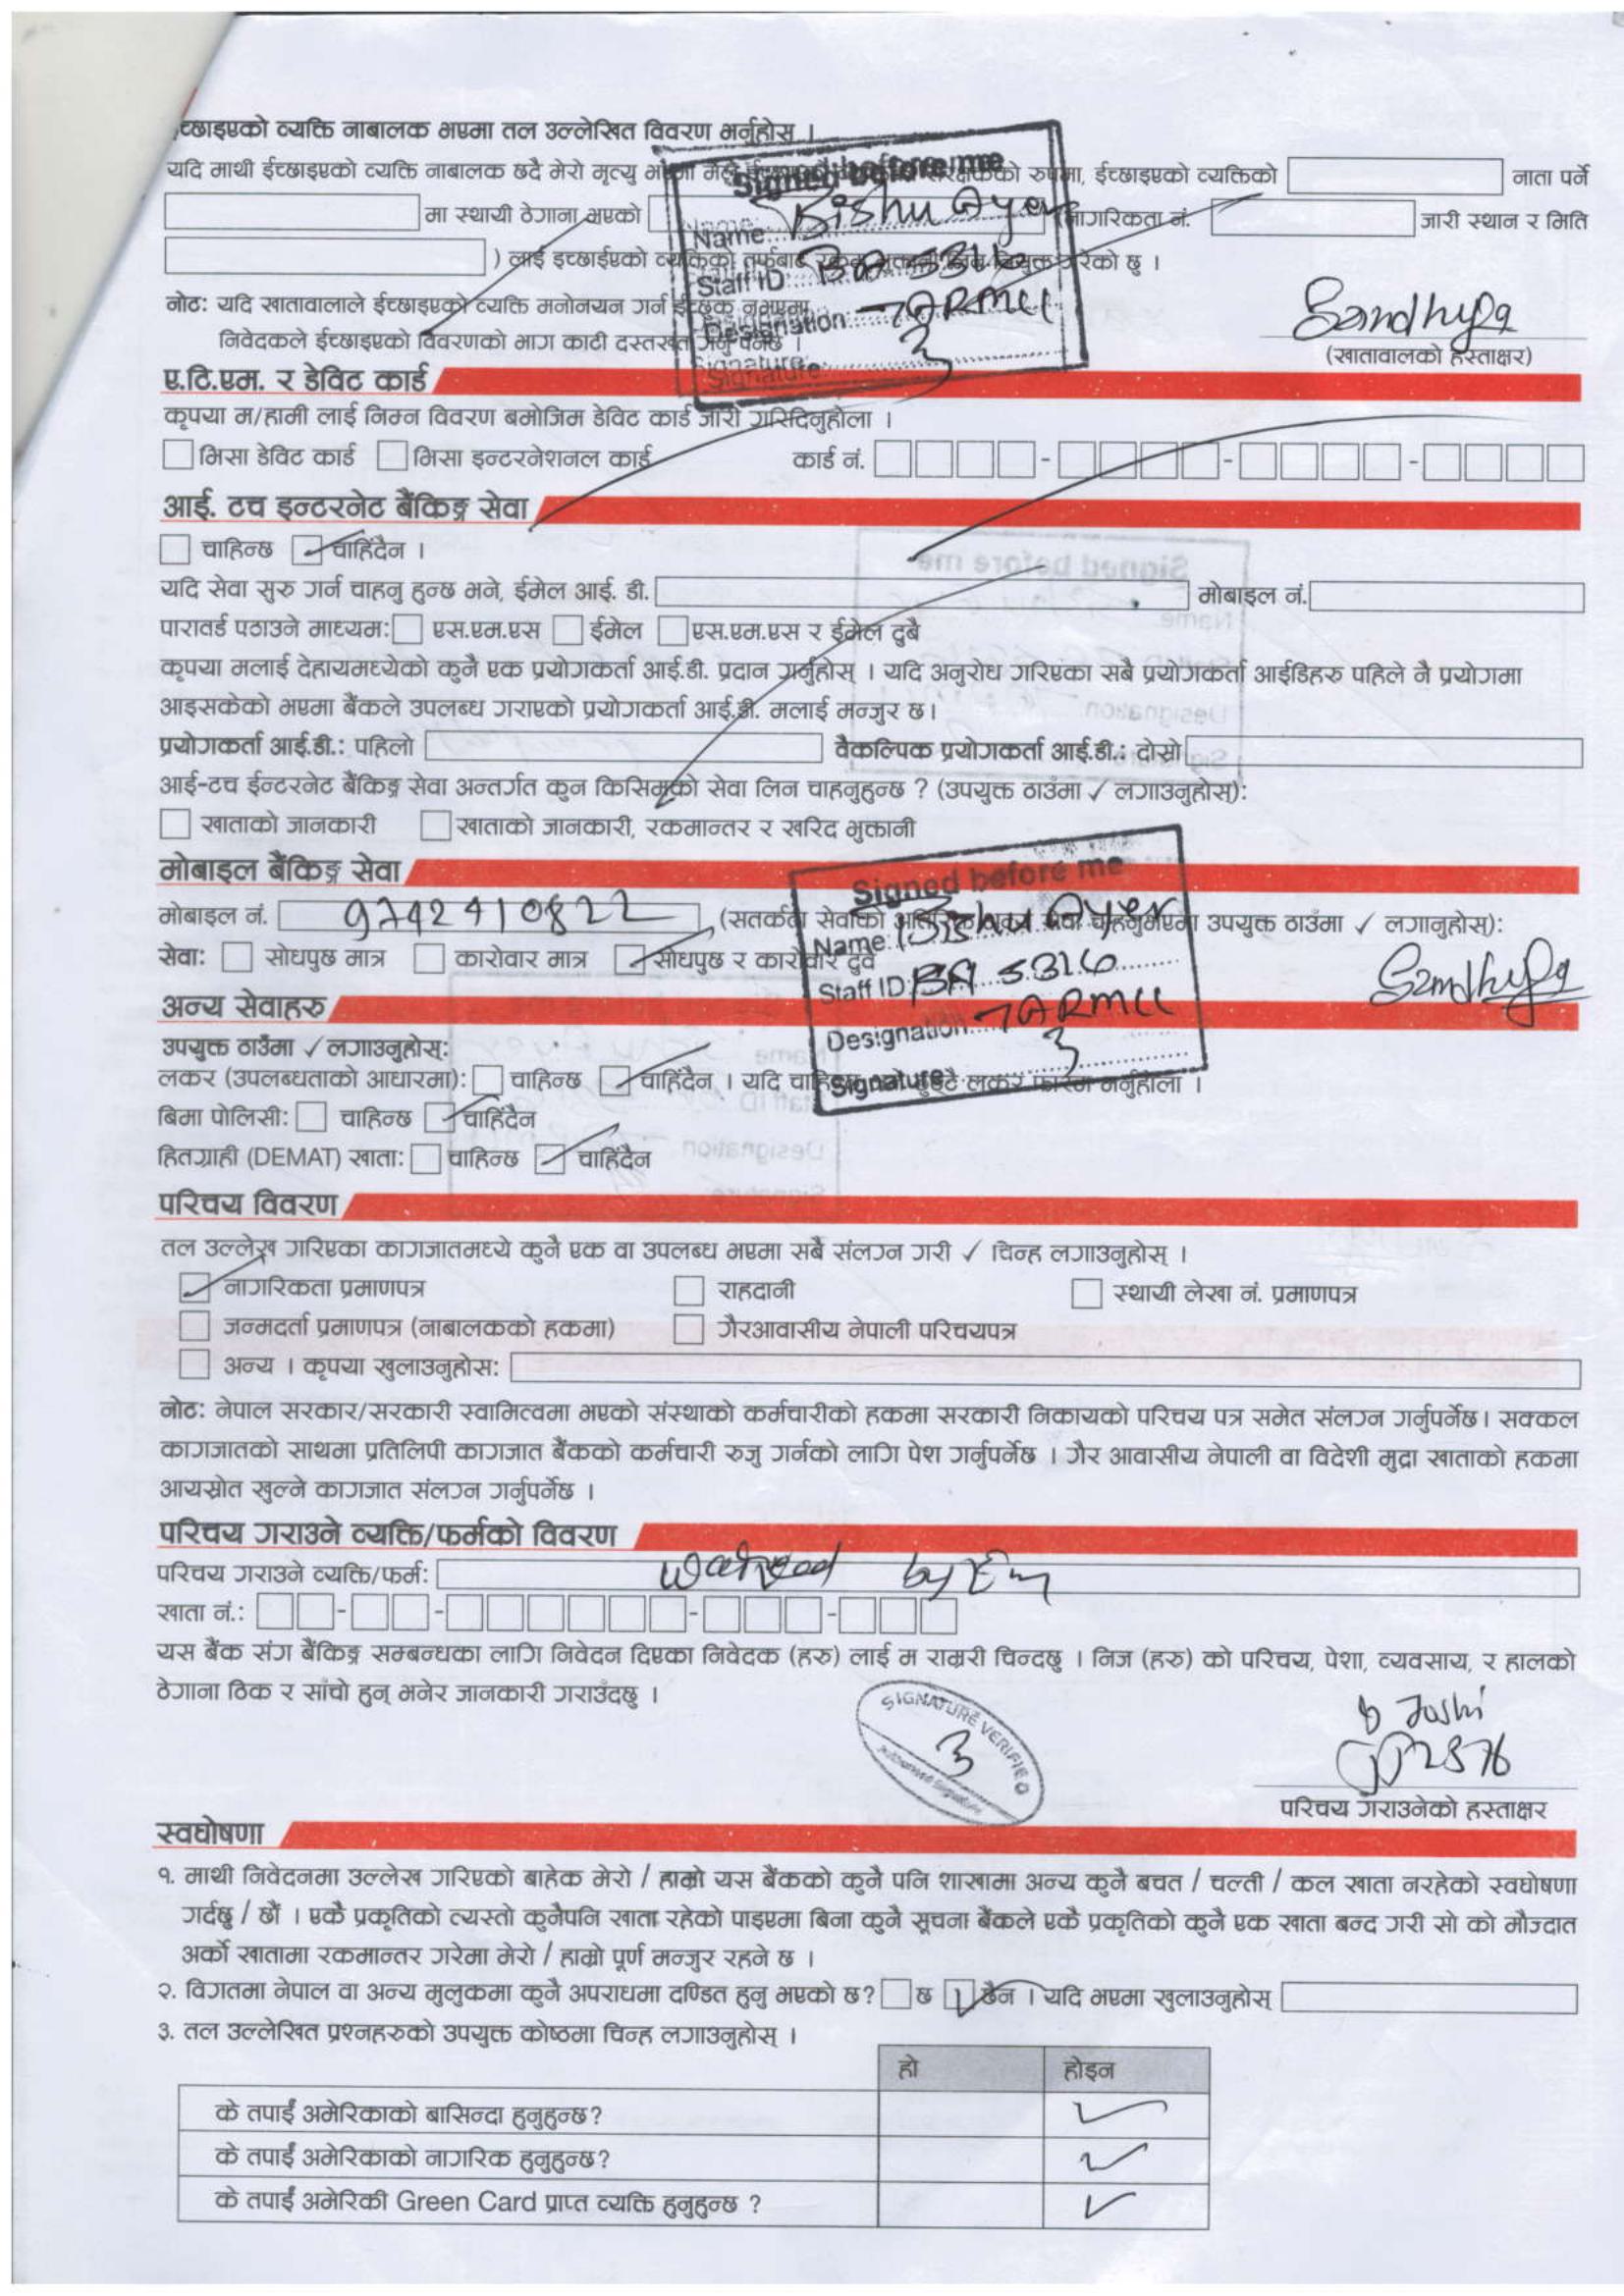 च्छाइएको व्यक्ति नाबालक भएमा तल उल्लेखित विवरण भर्नुहोस् ।
यदि माथी ईच्छाइएको व्यक्ति नाबालक छदै मेरो मृत्यु रुपमा, ईच्छाइएको व्यक्तिको नाता पर्ने
मा स्थायी ठेगाना भएको नागरिकता नं. जारी स्थान र मिति
) लाई इच्छाईएको व्यक्तिको तर्फबाट गरेको छु ।
नोट: यदि खातावालाले ईच्छाइएको व्यक्ति मनोनयन गर्न ईच्छुक नभएमा
निवेदकले ईच्छाइएको विवरणको भाग काटी दस्तखत गर्नु पर्नेछ ।
Signed before me
Name:
Staff ID: BA 5316
Designation
Signature:
Sandhya
(खातावालको हस्ताक्षर)
ए.टि.एम. र डेविट कार्ड
कृपया म/हामी लाई निम्न विवरण बमोजिम डेविट कार्ड जारी गरिदिनुहोला ।
भिसा डेविट कार्ड भिसा इन्टरनेशनल कार्ड कार्ड नं. - - -
आई. टच इन्टरनेट बैंकिङ्ग सेवा
चाहिन्छ चाहिंदैन ।
यदि सेवा सुरु गर्न चाहनु हुन्छ भने, ईमेल आई. डी. मोबाइल नं.
पारावर्ड पठाउने माध्यम: एस.एम.एस ईमेल एस.एम.एस र ईमेल दुबै
कृपया मलाई देहायमध्येको कुनै एक प्रयोगकर्ता आई.डी. प्रदान गर्नुहोस् । यदि अनुरोध गरिएका सबै प्रयोगकर्ता आईडिहरु पहिले नै प्रयोगमा
आइसकेको भएमा बैंकले उपलब्ध गराएको प्रयोगकर्ता आई.डी. मलाई मन्जुर छ।
प्रयोगकर्ता आई.डी.: पहिलो वैकल्पिक प्रयोगकर्ता आई.डी.: दोस्रो
आई-टच ईन्टरनेट बैंकिङ्ग सेवा अन्तर्गत कुन किसिमको सेवा लिन चाहनुहुन्छ ? (उपयुक्त ठाउंमा ✓ लगाउनुहोस्):
खाताको जानकारी खाताको जानकारी, रकमान्तर र खरिद भुक्तानी
मोबाइल बैंकिङ्ग सेवा
मोबाइल नं. 9742410822 (सतर्कता सेवाको उपयुक्त ठाउंमा ✓ लगानुहोस्):
सेवा: सोधपुछ मात्र कारोवार मात्र सोधपुछ र कारोवार दुवै
Signed before me
Name:
Staff ID: BA 5316
Designation
Signature
Sandhya
अन्य सेवाहरु
उपयुक्त ठाउँमा ✓ लगाउनुहोस्:
लकर (उपलब्धताको आधारमा): चाहिन्छ चाहिंदैन । यदि लकर फारम भर्नुहोला ।
बिमा पोलिसी: चाहिन्छ चाहिंदैन
हितग्राही (DEMAT) खाता: चाहिन्छ चाहिंदैन
परिचय विवरण
तल उल्लेख गरिएका कागजातमध्ये कुनै एक वा उपलब्ध भएमा सबै संलग्न गरी ✓ चिन्ह लगाउनुहोस् ।
नागरिकता प्रमाणपत्र राहदानी स्थायी लेखा नं. प्रमाणपत्र
जन्मदर्ता प्रमाणपत्र (नाबालकको हकमा) गैरआवासीय नेपाली परिचयपत्र
अन्य । कृपया खुलाउनुहोस:
नोट: नेपाल सरकार/सरकारी स्वामित्वमा भएको संस्थाको कर्मचारीको हकमा सरकारी निकायको परिचय पत्र समेत संलग्न गर्नुपर्नेछ। सक्कल
कागजातको साथमा प्रतिलिपी कागजात बैंकको कर्मचारी रुजु गर्नको लागि पेश गर्नुपर्नेछ । गैर आवासीय नेपाली वा विदेशी मुद्रा खाताको हकमा
आयस्रोत खुल्ने कागजात संलग्न गर्नुपर्नेछ ।
परिचय गराउने व्यक्ति/फर्मको विवरण
परिचय गराउने व्यक्ति/फर्म: by
खाता नं.: - - - -
यस बैंक संग बैंकिङ्ग सम्बन्धका लागि निवेदन दिएका निवेदक (हरु) लाई म राम्ररी चिन्दछु । निज (हरु) को परिचय, पेशा, व्यवसाय, र हालको
ठेगाना ठिक र सांचो हुन् भनेर जानकारी गराउंदछु ।
SIGNATURE VERIFIED
Authorised Signature
Joshi
2876
परिचय गराउनेको हस्ताक्षर
स्वघोषणा
१. माथी निवेदनमा उल्लेख गरिएको बाहेक मेरो / हाम्रो यस बैंकको कुनै पनि शाखामा अन्य कुनै बचत / चल्ती / कल खाता नरहेको स्वघोषणा
गर्दछु / छौं । एकै प्रकृतिको त्यस्तो कुनैपनि खाता रहेको पाइएमा बिना कुनै सूचना बैंकले एकै प्रकृतिको कुनै एक खाता बन्द गरी सो को मौज्दात
अर्को खातामा रकमान्तर गरेमा मेरो / हाम्रो पूर्ण मन्जुर रहने छ ।
२. विगतमा नेपाल वा अन्य मुलुकमा कुनै अपराधमा दण्डित हुनु भएको छ? छ छैन । यदि भएमा खुलाउनुहोस्
३. तल उल्लेखित प्रश्नहरुको उपयुक्त कोष्ठमा चिन्ह लगाउनुहोस् ।
हो होइन
के तपाईं अमेरिकाको बासिन्दा हुनुहुन्छ? ✓
के तपाईं अमेरिकाको नागरिक हुनुहुन्छ? ✓
के तपाईं अमेरिकी Green Card प्राप्त व्यक्ति हुनुहुन्छ ? ✓